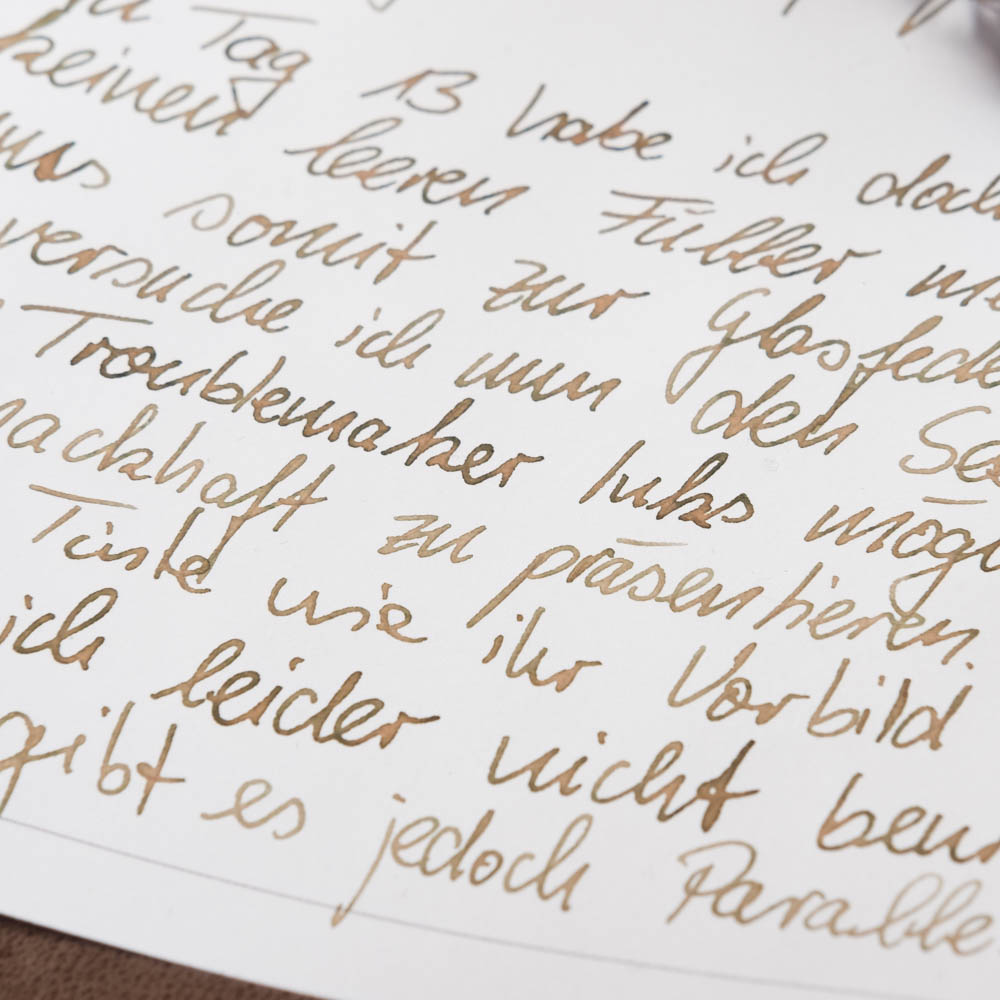 Tag 13 habe ich doch
keinen leeren Füller
somit zur Glasfede
versuche ich nun den Se
Troublemaker Inks mögl
ackhaft zu präsentieren.
Tinte wie ihr Vorbild
ich leider nicht
gibt es jedoch Parallele